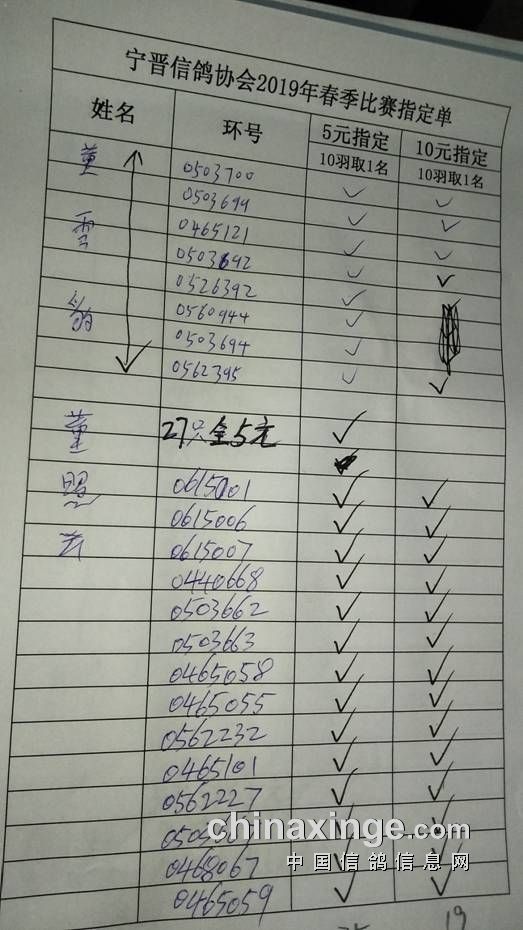 宁晋信鸽协会2019年春季比赛指定单
姓名 环号 5元指定 10元指定
10羽取1名 10羽取1名
董
0503700 ✓ ✓
0503699 ✓ ✓
0465121 ✓ ✓
0503692 ✓ ✓
0526392 ✓
0560944 ✓
0503694 ✓
0562395 ✓ ✓
董 27只全5元 ✓
0615001 ✓ ✓
0615006 ✓ ✓
0615007 ✓ ✓
0440668 ✓ ✓
0503662 ✓ ✓
0503663 ✓ ✓
0465058 ✓ ✓
0465055 ✓ ✓
0562232 ✓ ✓
0465101 ✓ ✓
0562227 ✓ ✓
chinaxinge.com
0468067 ✓
中国信鸽信息网
0465059 ✓ ✓
19